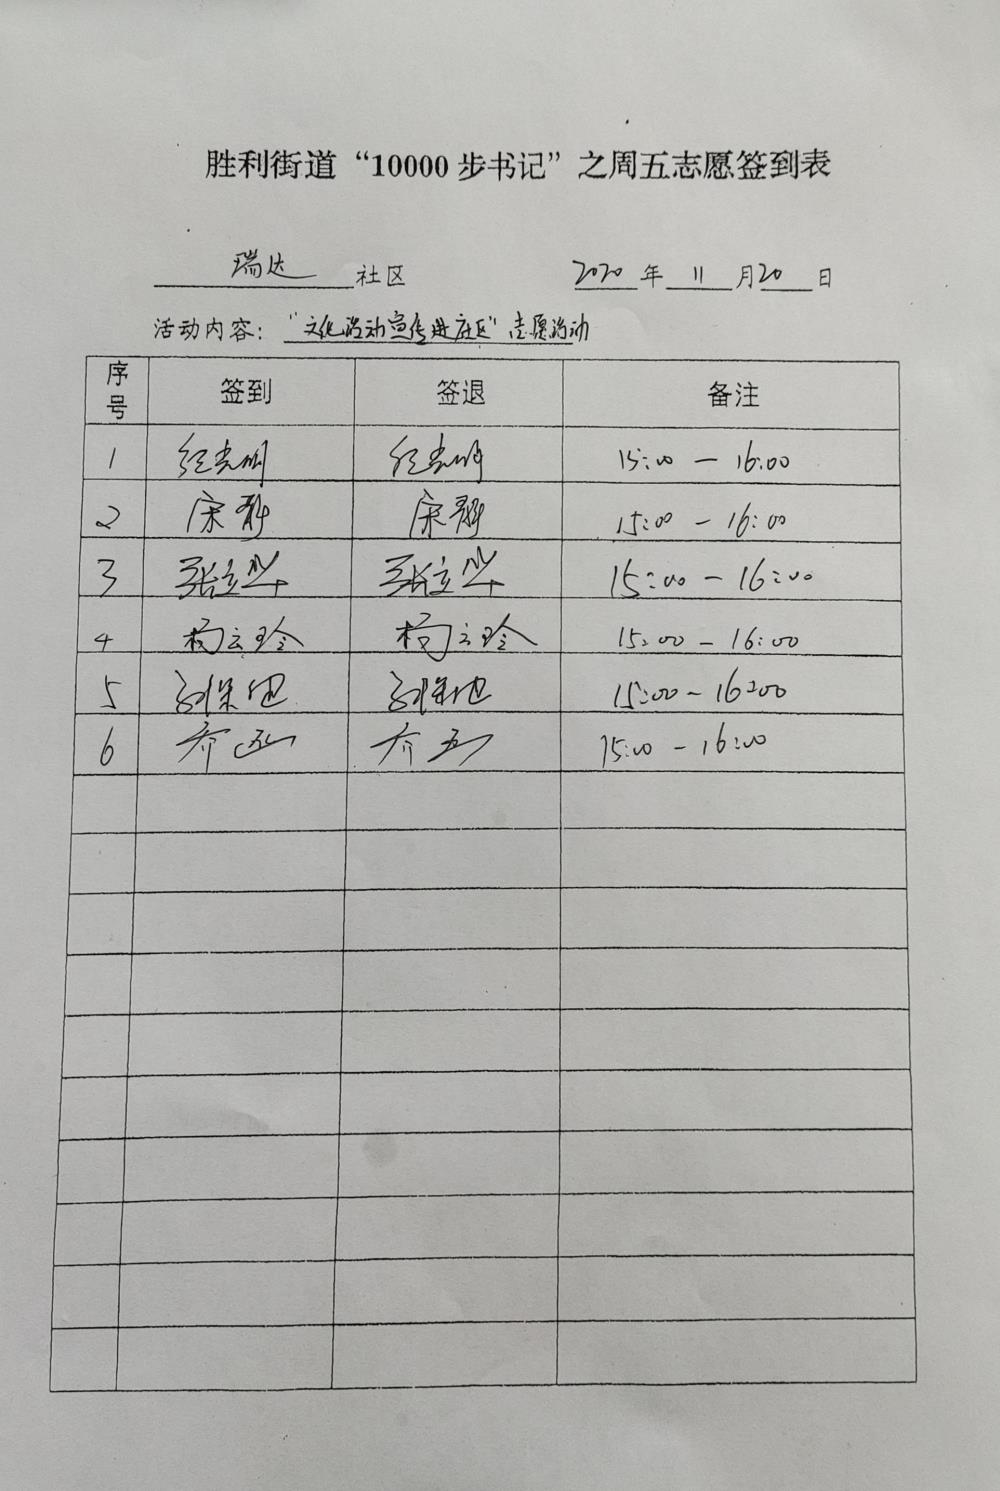 胜利街道“10000步书记”之周五志愿签到表
瑞达社区 2020年11月20日
活动内容：“文化活动宣传进社区”志愿活动
序号 签到 签退 备注
1 15:00－16:00
2 宋静 宋静 15:00－16:00
3 张立华 张立华 15:00－16:00
4 杨云玲 杨云玲 15:00－16:00
5 15:00－16:00
6 15:00－16:00